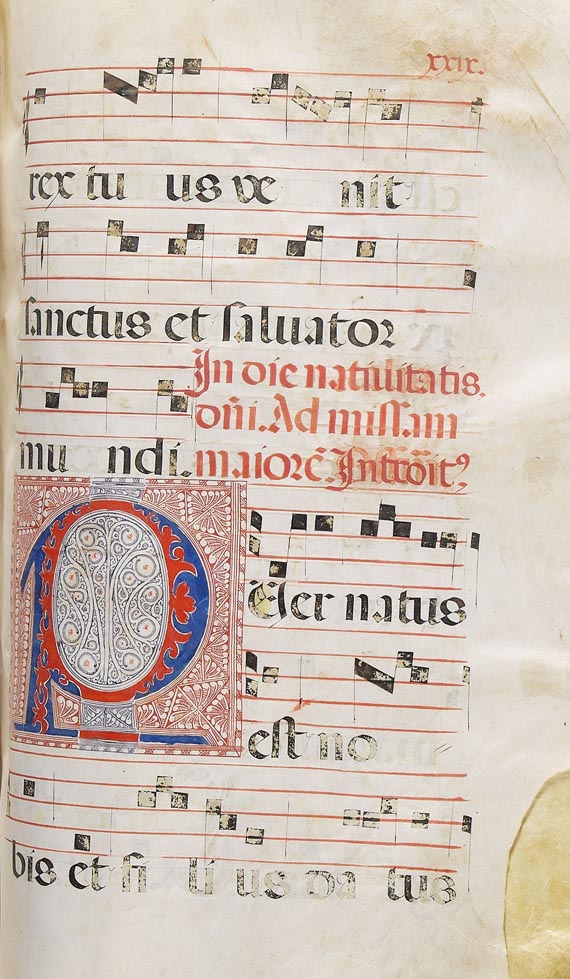 xxix.
rex tu us ve nit
sanctus et salvator
In die natiuitatis.
dñi. Ad missam
mu ndi. maiorē. Introit⁹
P Uer natus
est no
bis et fi li us da tus